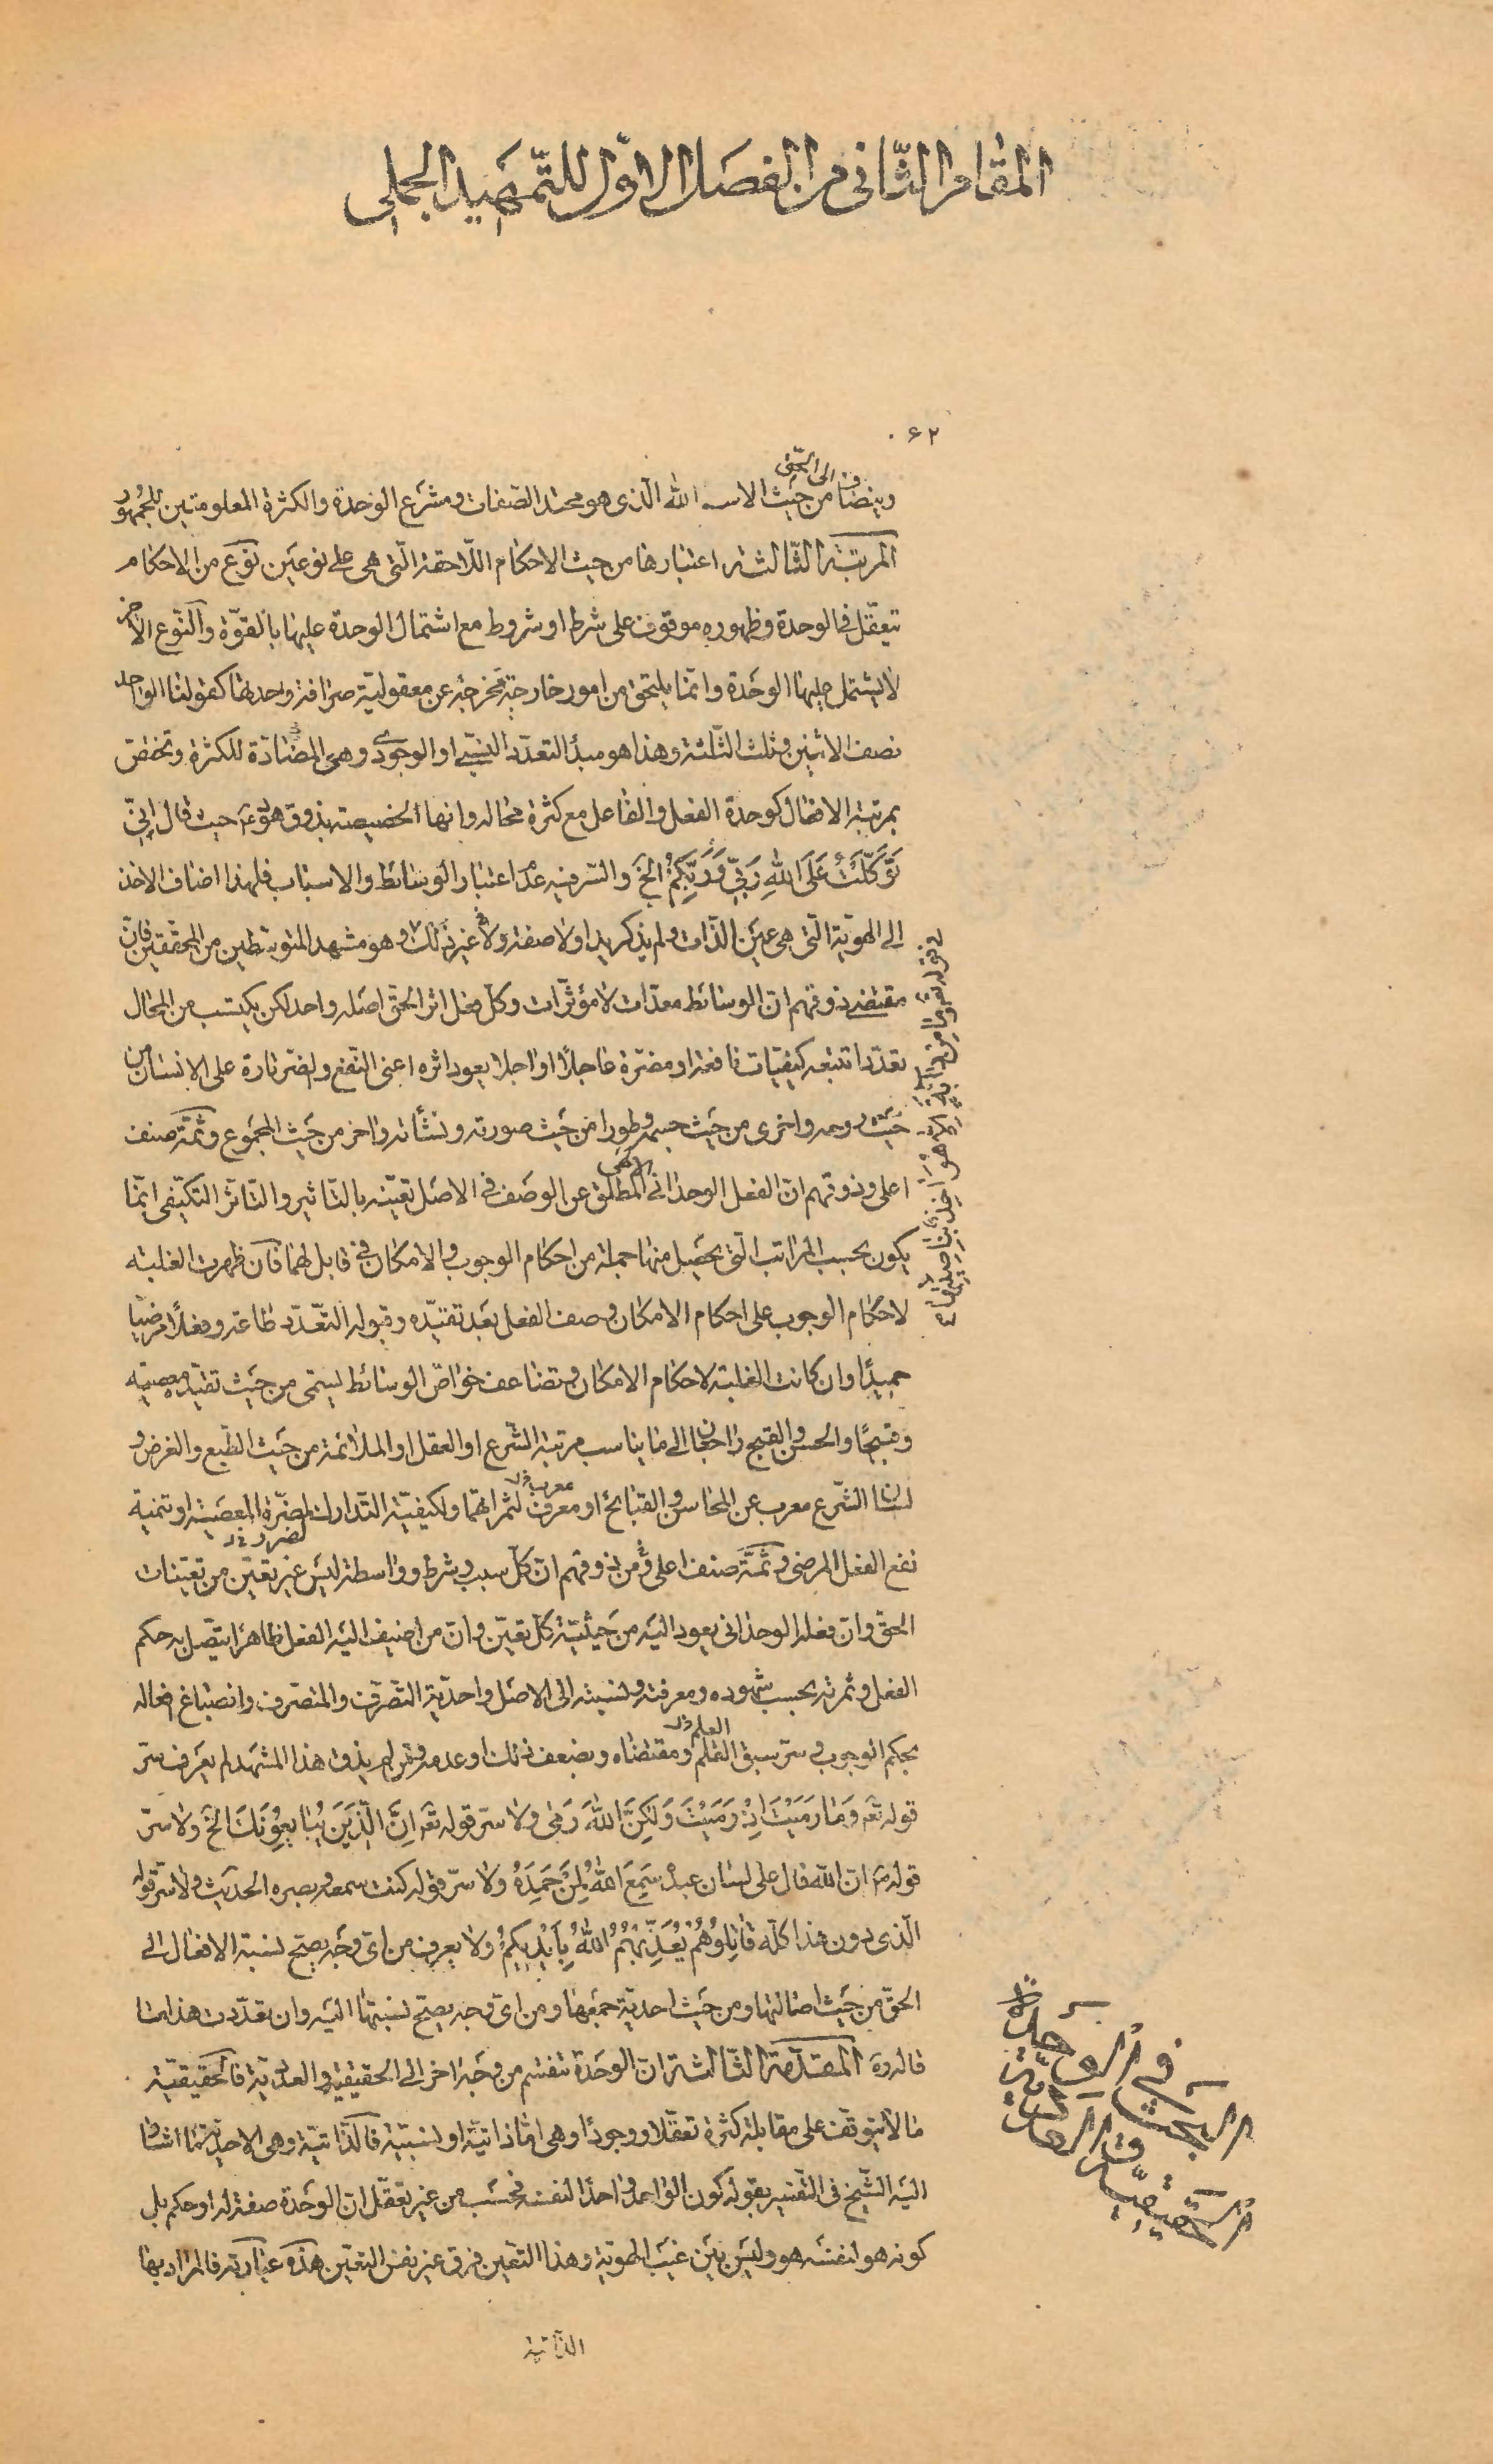 المقام الثّانى من الفصل الاوّل للتّمهيد الجملى
۶۲
ويضاف الى الحقّ من حيث الاسم الله الّذى هو محتد الصّفات ومشرع الوحدة والكثرة المعلومتين للجمهور
المرتبة الثّالثة اعتبارها من حيث الاحكام اللّاحقة الّتى هى على نوعين نوع من الاحكام
تتعقّل فى الوحدة وظهوره موقوف على شرط او شروط مع اشتمال الوحدة عليها بالقوّة والنّوع الاخر
لا يشتمل عليها الوحدة وانّما يلتحق من امور خارجيّة مخرجيّة عن معقوليّة صرافة وحدتها كقولنا الواحد
نصف الاثنين وثلث الثّلثة وهذا هو مبدأ التعدّد النسبى او الوجودى وهى المضادّة للكثرة وتختصّ
بمرتبة الافعال كوحدة الفعل والفاعل مع كثرة محاله وانها الخصيصة بذوق هود ع حيث قال انّى
توَكّلتُ عَلَى اللهِ رَبّى وَرَبِّكُمْ الخ والسّر فيه عدم اعتبار الوسائط والاسباب فلهذا اضاف الاخذ
الى الهويّة الّتى هى عين الذّات ولم يذكر يدا ولا صفة ولا غير ذلك وهو مشهد المتوسّطين من المحقّقين فانّ
مقتضى ذوقهم انّ الوسائط معدّات لا مؤثّرات وكلّ فعل اثر الحقّ اصله واحد لكن يكتسب من المحالّ
تعدّدا تتبعه كيفيّات نافعة او مضرّة عاجلًا او اجلا يعود اثره اعنى النّفع والضّر تارة على الانسان من
حيث روحه واخرى من حيث جسمه وطورا من حيث صورته ونشأته واخر من حيث المجموع وثمّة صنف
اعلى وذوقهم انّ الفعل الوحدانى الالهى المطلق عن الوصف فى الاصل تعيّنه بالتّاثير والتّاثّر التّكيّفى انّما
يكون بحسب المراتب الّتى يحصل منها جملة من احكام الوجوب والامكان فى قابل لهما فان ظهرت الغلبة
لاحكام الوجوب على احكام الامكان وصف الفعل بعد تقيّده وقبوله التّعدّد طاعة وفعلًا مرضيّا
حميدًا وان كانت الغلبة لاحكام الامكان وتضاعف خواصّ الوسائط يسمّى من حيث تقيّده معصية
وقبيحًا والحسن والقبح راجحان الى ما يناسب مرتبة الشّرع او العقل او الملائمة من حيث الطّبع والغرض و
لسان الشّرع معرب عن المحاسن والقبائح او معرف معرب خل لثمراتهما ولكيفيّة التّدارك لمضرّة المعصية او تنمية
لضرر خل
نفع الفعل المرضى وثمّة صنف اعلى و من ذوقهم انّ كلّ سبب وشرط وواسطة ليس غير تعيّن من تعيّنات
الحقّ وانّ فعله الوحدانى يعود اليه من حيثيّة كلّ تعيّن وانّ من اضيف اليه الفعل ظاهرًا يتّصل به حكم
الفعل وثمرته بحسب شهوده ومعرفته ونسبته الى الاصل واحديّة التّصرّف والمتصرّف وانصباغ افعاله
بحكم الوجوب وسرّ سبق القلم العلم خل ومقتضاه وبضعف ذلك او عدمه ومن لم يذق هذا المشهد لم يعرف سرّ
قوله تعَ وَمَا رَمَيْتَ اِذْ رَمَيْتَ وَلكِنَّ اللهَ رَمى ولا سرّ قوله تعَ اِنَّ الّذينَ يُبايِعُونَكَ الخ ولا سرّ
قوله ص انّ الله قال على لسان عبده سَمِعَ اللهُ لِمَنْ حَمِدَهُ ولا سرّ قوله كنت سمعه وبصره الحديث ولا سرّ قوله
الّذى دون هذا كلّه قاتِلُوهُمْ يُعَذِّبْهُمُ اللهُ بِاَيْديكُمْ ولا يعرف من اىّ وجه يصحّ نسبة الافعال الى
الحقّ من حيث اصالتها ومن حيث احديّة جمعها ومن اىّ وجه يصحّ نسبتها اليه وان تعدّدت هذا ما
قاله ره المقدّمة الثّالثة انّ الوحدة تنقسم من وجه اخر الى الحقيقيّة والعدديّة فالحقيقيّة
ما لا يتوقّف على مقابلة كثرة تعقّلا ووجودًا وهى امّا ذاتيّة او نسبيّة فالذّاتيّة وهى الاحديّة ما اشار
اليه الشّيخ فى التّفسير بقوله كون الواحد واحدًا لنفسه فحسب من غير تعقّل انّ الوحدة صفة له او حكم بل
كونه هو لنفسه هو وليس بين غيب الهويّة وهذا التعين فرق غير نفس التعيّن هذه عبارته فالمراد بها
الذّاتية
فى قوله تعَ وَما مِنْ دابَّةٍ اِلّا هُوَ اخِذٌ بِناصِيَتِها
البحث فى الوحدة
الحقيقيّة والعدديّة